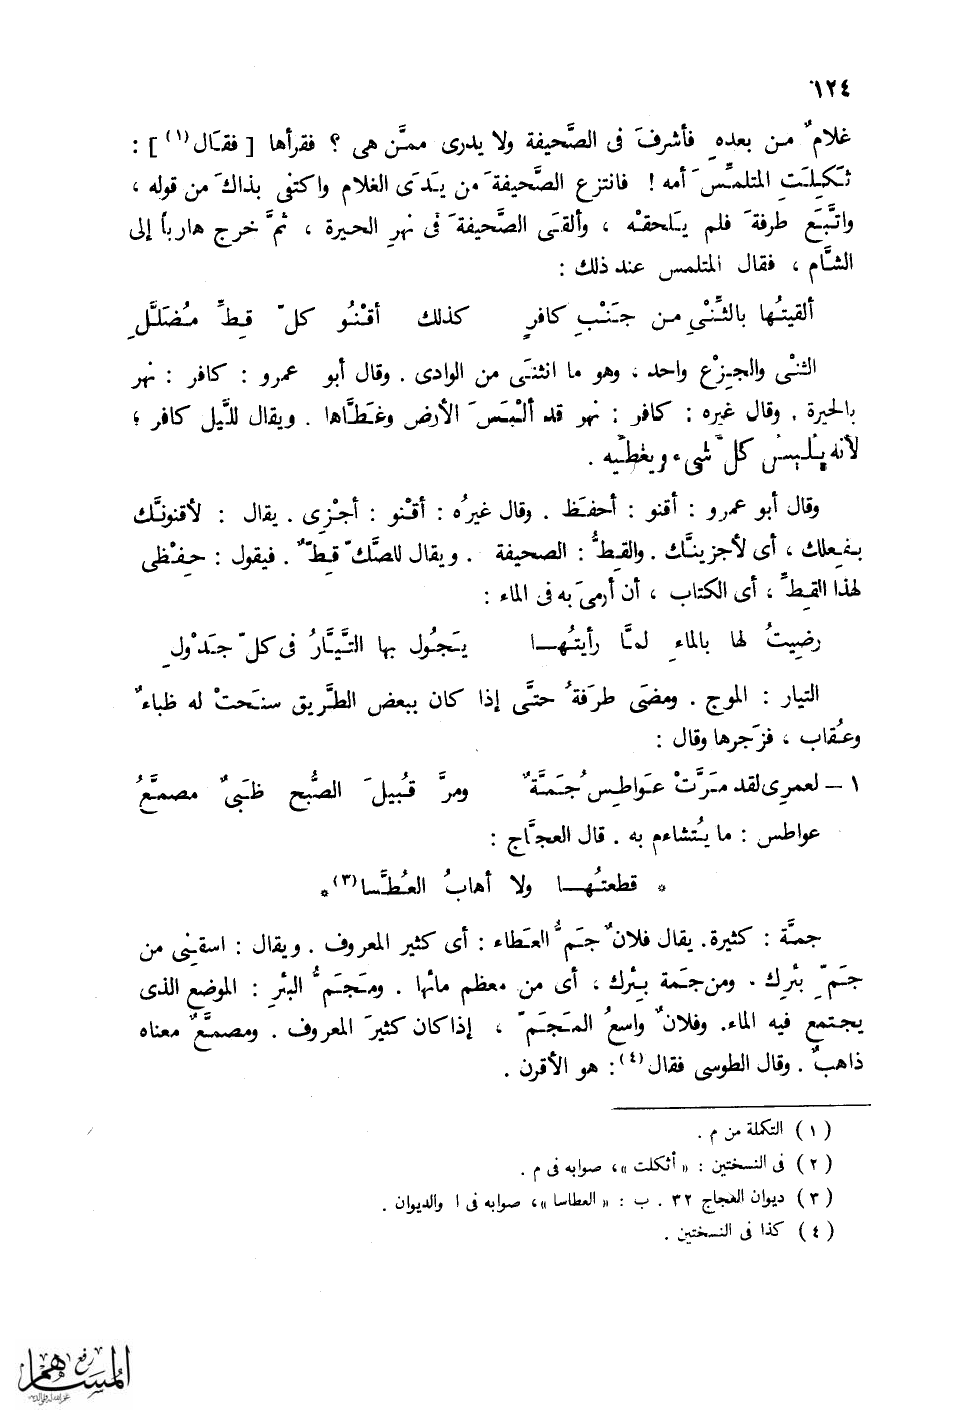 ١٢٤
غلامٌ من بعدهِ فأشرفَ فى الصَّحيفة ولا يدرى ممَّن هى ؟ فقرأها [ فقال (١) ] :
ثَكِلَتِ المتلمِّسَ أمه ! فانتزع الصَّحيفةَ من يَدَى الغلام واكتفى بذاكَ من قوله ،
واتَّبَعَ طرفةَ فلم يَلحقْه ، وألقَى الصَّحيفةَ فى نهرِ الحيرة ، ثمَّ خرج هارباً إلى
الشَّام ، فقال المتلمس عند ذلك :
ألقيتُها بالثِّنْىِ من جَنْبِ كافرٍ كذلك أقْنُو كلّ قِطٍّ مُضَلَّلِ
الثنْى والجِزْع واحد ، وهو ما انثنَى من الوادى . وقال أبو عمرو : كافر : نهر
بالحيرة . وقال غيره : كافر : نهر قد ألْبَسَ الأرض وغَطَّاها . ويقال للَّيل كافر ؛
لأنه يُلْبِسُ كلَّ شىء ويغطِّيه .
وقال أبو عمرو : أقنو : أحفَظ . وقال غيرُه : أقْنو : أجْزِى . يقال : لأقنونَّك
بفِعلك ، أى لأجزينَّك . والقِطُّ : الصحيفة . ويقال للصَّكّ قِطٌّ . فيقول : حِفْظى
لهذا القِطِّ ، أى الكتاب ، أن أرمىَ به فى الماء :
رضِيتُ لها بالماءِ لمَّا رأيتُهـا يَجُول بها التَّيَّارُ فى كلّ جَدْولِ
التيار : الموج . ومضَى طرَفةُ حتَّى إذا كان ببعض الطَّريق سنَحتْ له ظباءٌ
وعُقاب ، فزَجرها وقال :
١ – لعمرِى لقد مَرَّتْ عَواطِسُ جُمَّةٌ ومرَّ قُبيلَ الصُّبح ظَبىٌ مصمَّعُ
عواطس : ما يُتشاءم به . قال العجَّاج :
* قطعتُهـا ولا أهابُ العُطَّسا(٣)*
جمَّة : كثيرة. يقال فلانٌ جَمُّ العَطاء : أى كثير المعروف . ويقال : اسقِنى من
جَمِّ بئرِك . ومن جَمة بِئرك ، أى من معظم مائها . ومَجَمُّ البئرِ : الموضع الذى
يجتمع فيه الماء. وفلانٌ واسعُ المَجَمّ ، إذا كان كثيرَ المعروف . ومصمَّعٌ معناه
ذاهبٌ . وقال الطوسى فقال(٤): هو الأقرن .
( ١ ) التكملة من م .
( ٢ ) فى النسختين : « أثكلت »، صوابه فى م .
( ٣ ) ديوان العجاج ٣٢ . ب : « العطاسا »، صوابه فى ا والديوان .
( ٤ ) كذا فى النسختين .